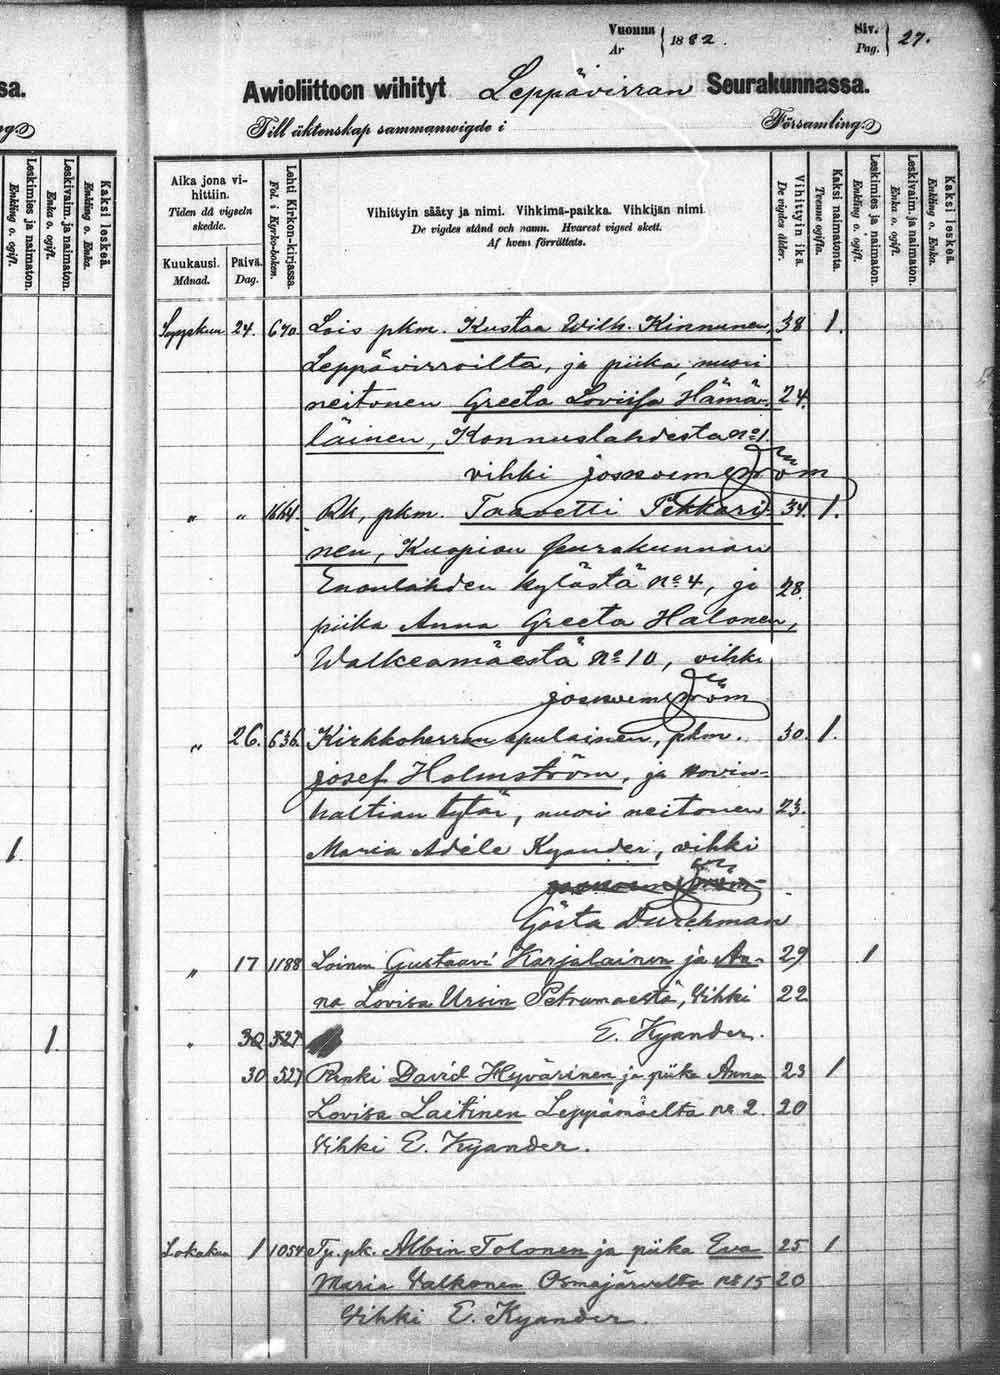 sa.
ng.
Kaksi leskeä.
Enkling o. Enka.
Leskivaim. ja naimaton.
Enka o. ogift.
Leskimies ja naimaton.
Enkling o. ogift.
1.
1.
Vuonna 1882. Siv. 27.
År Pag.
Awioliittoon wihityt Leppävirran Seurakunnassa.
Till äktenskap sammanwigde i Församling.
Aika jona vihittiin.
Tiden då vigseln skedde.
Kuukausi. Månad.
Päivä. Dag.
Lehti Kirkon-kirjassa.
Fol. i Kyrko-boken.
Vihittyin sääty ja nimi. Vihkimä-paikka. Vihkijän nimi.
De vigdes stånd och namn. Hvarest vigsel skett.
Af hvem förrättats.
Vihittyin ikä.
De vigdes ålder.
Kaksi naimatonta.
Tvenne ogifta.
Leskimies ja naimaton.
Enkling o. ogift.
Leskivaim. ja naimaton.
Enka o. ogift.
Kaksi leskeä.
Enkling o. Enka.
Syyskuu 24. 670. Lois pkm. Kustaa Wilh. Kinnunen, 38 1.
Leppävirroilta, ja piika, nuori
neitonen Greeta Loviisa Hämä- 24.
läinen, Konnuslahdesta No 1
vihki
" " 1664. Rk, pkm. Taavetti Pekkari- 34. 1.
nen, Kuopion seurakunnan
Enonlahden kylästä No 4, ja 28.
piika Anna Greeta Halonen,
Walkeamäestä No 10, vihki
" 26. 636. Kirkkoherran apulainen, pkm. 30. 1.
Josef Holmström, ja
haltian tytär, nuori neitonen 23.
Maria Adéle Kyander, vihki
Gösta Durchman
" 17 1188 Loinen Gustaavi Karjalainen ja An- 29 1
na Lovisa Ursin Petromaestä, Vihki 22
" 30 527 E. Kyander.
30 527 Renki David Hyvärinen ja piika Anna 23 1
Lovisa Laitinen Leppämäeltä No 2 20
Vihki E. Kyander.
Lokakuu 1 1054 Ty. pk. Albin Tolonen ja piika Eva 25 1
Maria Valkonen Osmajärveltä No 15 20
Vihki E. Kyander.